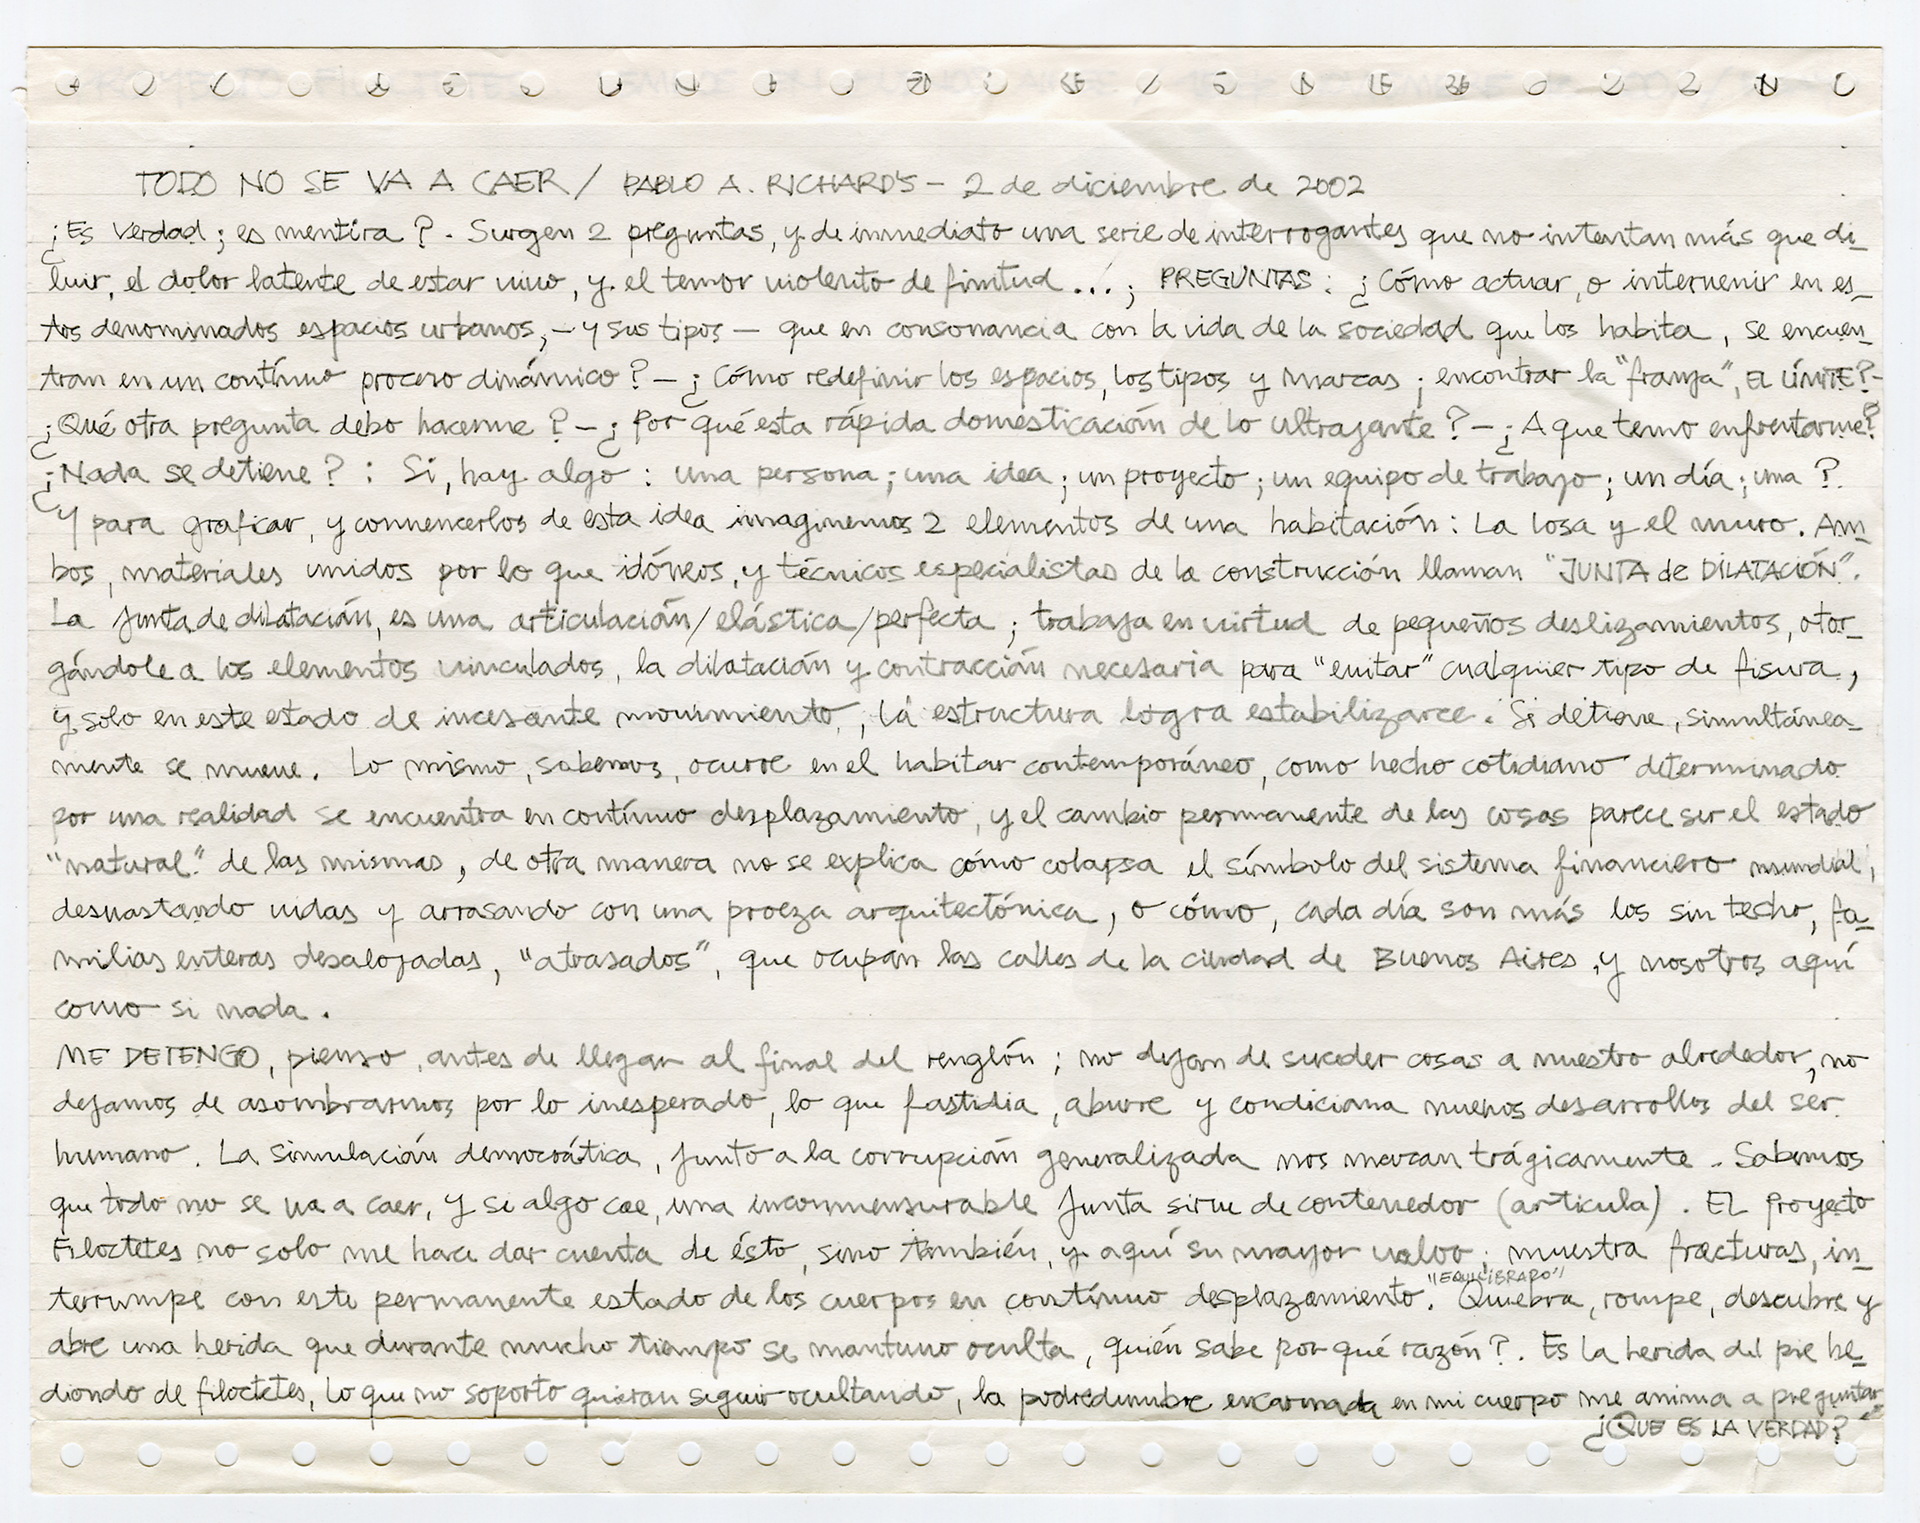 TODO NO SE VA A CAER / PABLO A. RICHARD'S - 2 de diciembre de 2002
¿Es verdad; es mentira?. Surgen 2 preguntas, y de inmediato una serie de interrogantes que no intentan más que di_
luir, el dolor latente de estar vivo, y el temor violento de finitud ...; PREGUNTAS: ¿Cómo actuar, o intervenir en es_
tos denominados espacios urbanos, - y sus tipos - que en consonancia con la vida de la sociedad que los habita, se encuen_
tran en un contínuo proceso dinámico? - ¿Cómo redefinir los espacios, los tipos y marcas; encontrar la "franja", EL LÍMITE? -
¿Qué otra pregunta debo hacerme? - ¿Por qué esta rápida domesticación de lo ultrajante? - ¿A que temo enfrentarme?
¿Nada se detiene? : Si, hay algo : una persona; una idea; un proyecto; un equipo de trabajo; un día; una ?.
Y para graficar, y convencerlos de esta idea imaginemos 2 elementos de una habitación: La losa y el muro. Am_
bos, materiales unidos por lo que idóneos, y técnicos especialistas de la construcción llaman "JUNTA de DILATACIÓN".
La junta de dilatación, es una articulación/elástica/perfecta; trabaja en virtud de pequeños deslizamientos, otor_
gándole a los elementos vinculados, la dilatación y contracción necesaria para "evitar" cualquier tipo de fisura,
y solo en este estado de incesante movimiento, la estructura logra estabilizarce. Si detiene, simultánea_
mente se mueve. Lo mismo, sabemos, ocurre en el habitar contemporáneo, como hecho cotidiano determinado
por una realidad se encuentra en contínuo desplazamiento, y el cambio permanente de las cosas parece ser el estado
"natural" de las mismas, de otra manera no se explica cómo colapsa el símbolo del sistema financiero mundial,
desvastando vidas y arrasando con una proeza arquitectónica, o cómo, cada día son más los sin techo, fa_
milias enteras desalojadas, "atrasados", que ocupan las calles de la ciudad de Buenos Aires, y nosotros aquí
como si nada.
ME DETENGO, pienso, antes de llegar al final del renglón; no dejan de suceder cosas a nuestro alrededor, no
dejamos de asombrarnos por lo inesperado, lo que fastidia, aburre y condiciona nuevos desarrollos del ser
humano. La simulación democrática, junto a la corrupción generalizada nos marcan trágicamente. Sabemos
que todo no se va a caer, y si algo cae, una inconmensurable junta sirve de contenedor (articula). EL Proyecto
Filoctetes no solo me hace dar cuenta de ésto, sino también, y aquí su mayor valor; muestra fracturas, in_
terrumpe con este permanente estado de los cuerpos en contínuo desplazamiento. "EQUILIBRADO" Quiebra, rompe, descubre y
abre una herida que durante mucho tiempo se mantuvo oculta, quién sabe por qué razón?. Es la herida del pie he_
diondo de filoctetes, lo que no soporto quieran seguir ocultando, la podredumbre encarnada en mi cuerpo me anima a preguntar
¿QUE ES LA VERDAD?